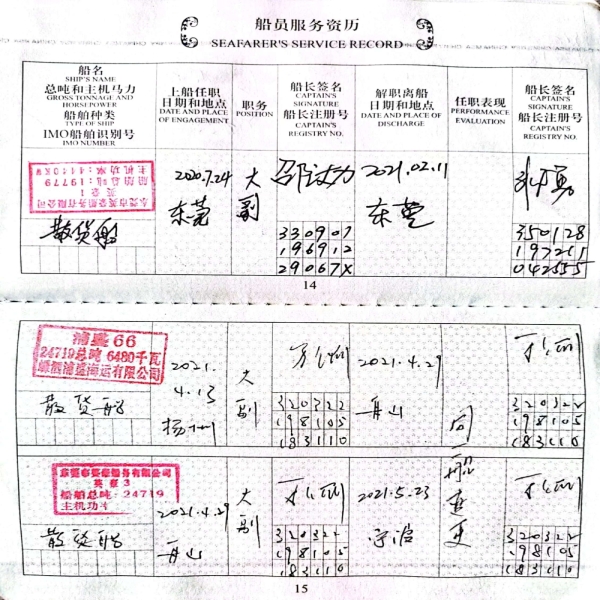 船员服务资历
SEAFARER'S SERVICE RECORD
船名
SHIP'S NAME
总吨和主机马力
GROSS TONNAGE AND
HORSE POWER
船舶种类
TYPE OF SHIP
IMO船舶识别号
IMO NUMBER
上船任职
日期和地点
DATE AND PLACE
OF ENGAGEMENT
职务
POSITION
船长签名
CAPTAIN'S
SIGNATURE
船长注册号
CAPTAIN'S
REGISTRY NO.
解职离船
日期和地点
DATE AND PLACE OF
DISCHARGE
任职表现
PERFORMANCE
EVALUATION
船长签名
CAPTAIN'S
SIGNATURE
船长注册号
CAPTAIN'S
REGISTRY NO.
船舶总吨:19779
主机功率:4440KW
散货船
2020.7.24
东莞
大副
330907
196912
29067X
2021.02.11
东莞
350128
197211
042555
14
浦盛 66
24719总吨 6480千瓦
浦盛海运有限公司
散货船
2021.
4.13
扬州
大副
320322
198105
183110
2021.4.29
舟山
同船变更
320322
198105
183110
船务有限公司
英泰 3
船舶总吨:24719
主机功率
散货船
2021.4.29
舟山
大副
320322
198105
183110
2021.5.23
宁波
320322
198105
183110
15